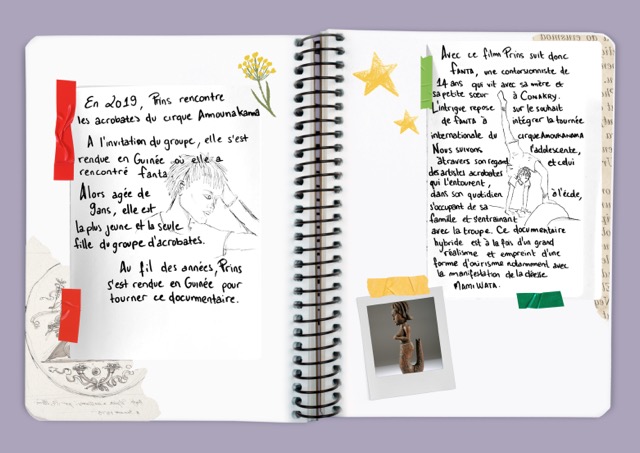 En 2019, Prins rencontre
les acrobates du cirque Amoukanama
A l'invitation du groupe, elle s'est
rendue en Guinée où elle a
rencontré fanta
Alors agée de
9ans, elle est
la plus jeune et la seule
fille du groupe d'acrobates.
Au fil des années, Prins
s'est rendue en Guinée pour
tourner ce documentaire.
Avec ce film Prins suit donc
FANTA, une contorsionniste de
14 ans qui vit avec sa mère et
sa petite sœur à CONAKRY.
L'intrigue repose sur le souhait
de fanta à intégrer la tournée
internationale du cirque AMOUKANAMA
Nous suivons l'adolescente,
à travers son regard et celui
des artistes acrobates
qui l'entourent,
dans son quotidien à l'école,
s'occupant de sa
famille et s'entrainant
avec la troupe. Ce documentaire
hybride est à la fois d'un grand
réalisme et empreint d'une
forme d'onirisme notamment avec
la manifestation de la déesse
MAMI WATA.